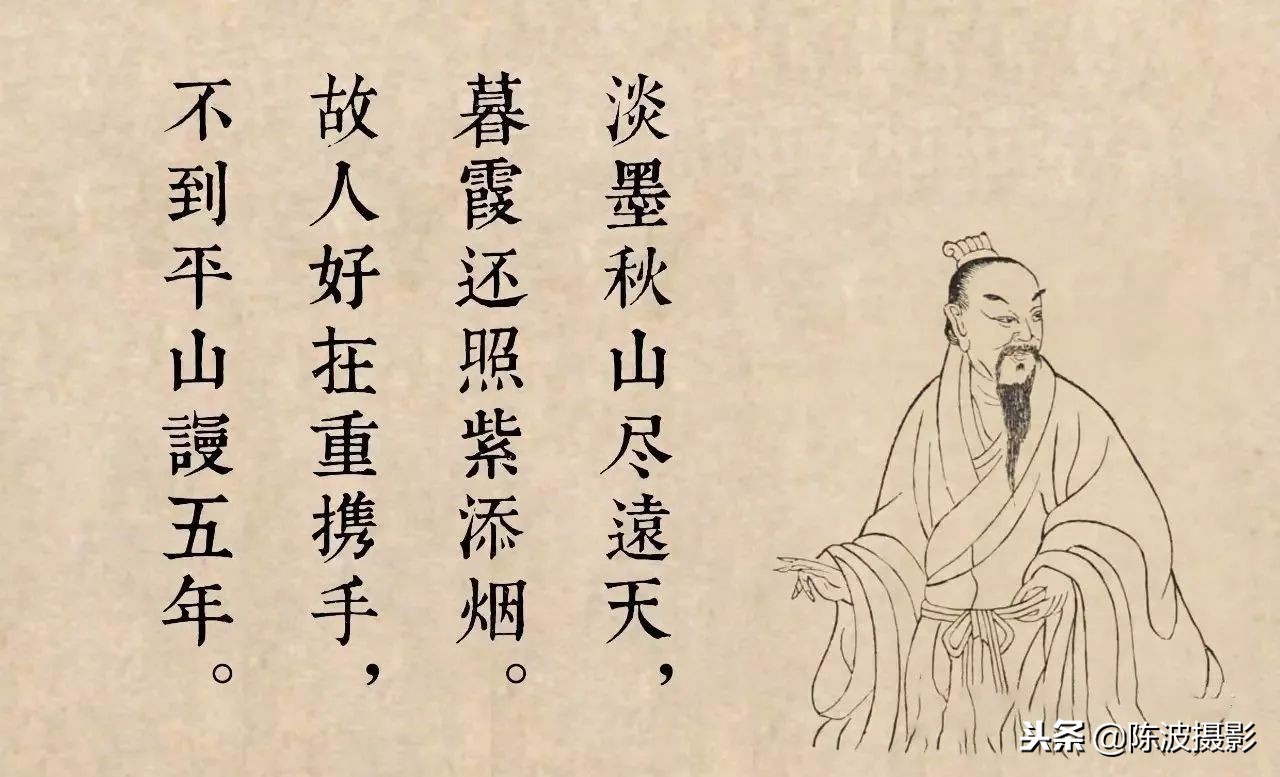 淡墨秋山尽遠天，
暮霞还照紫添烟。
故人好在重携手，
不到平山謾五年。
头条 @陈波摄影